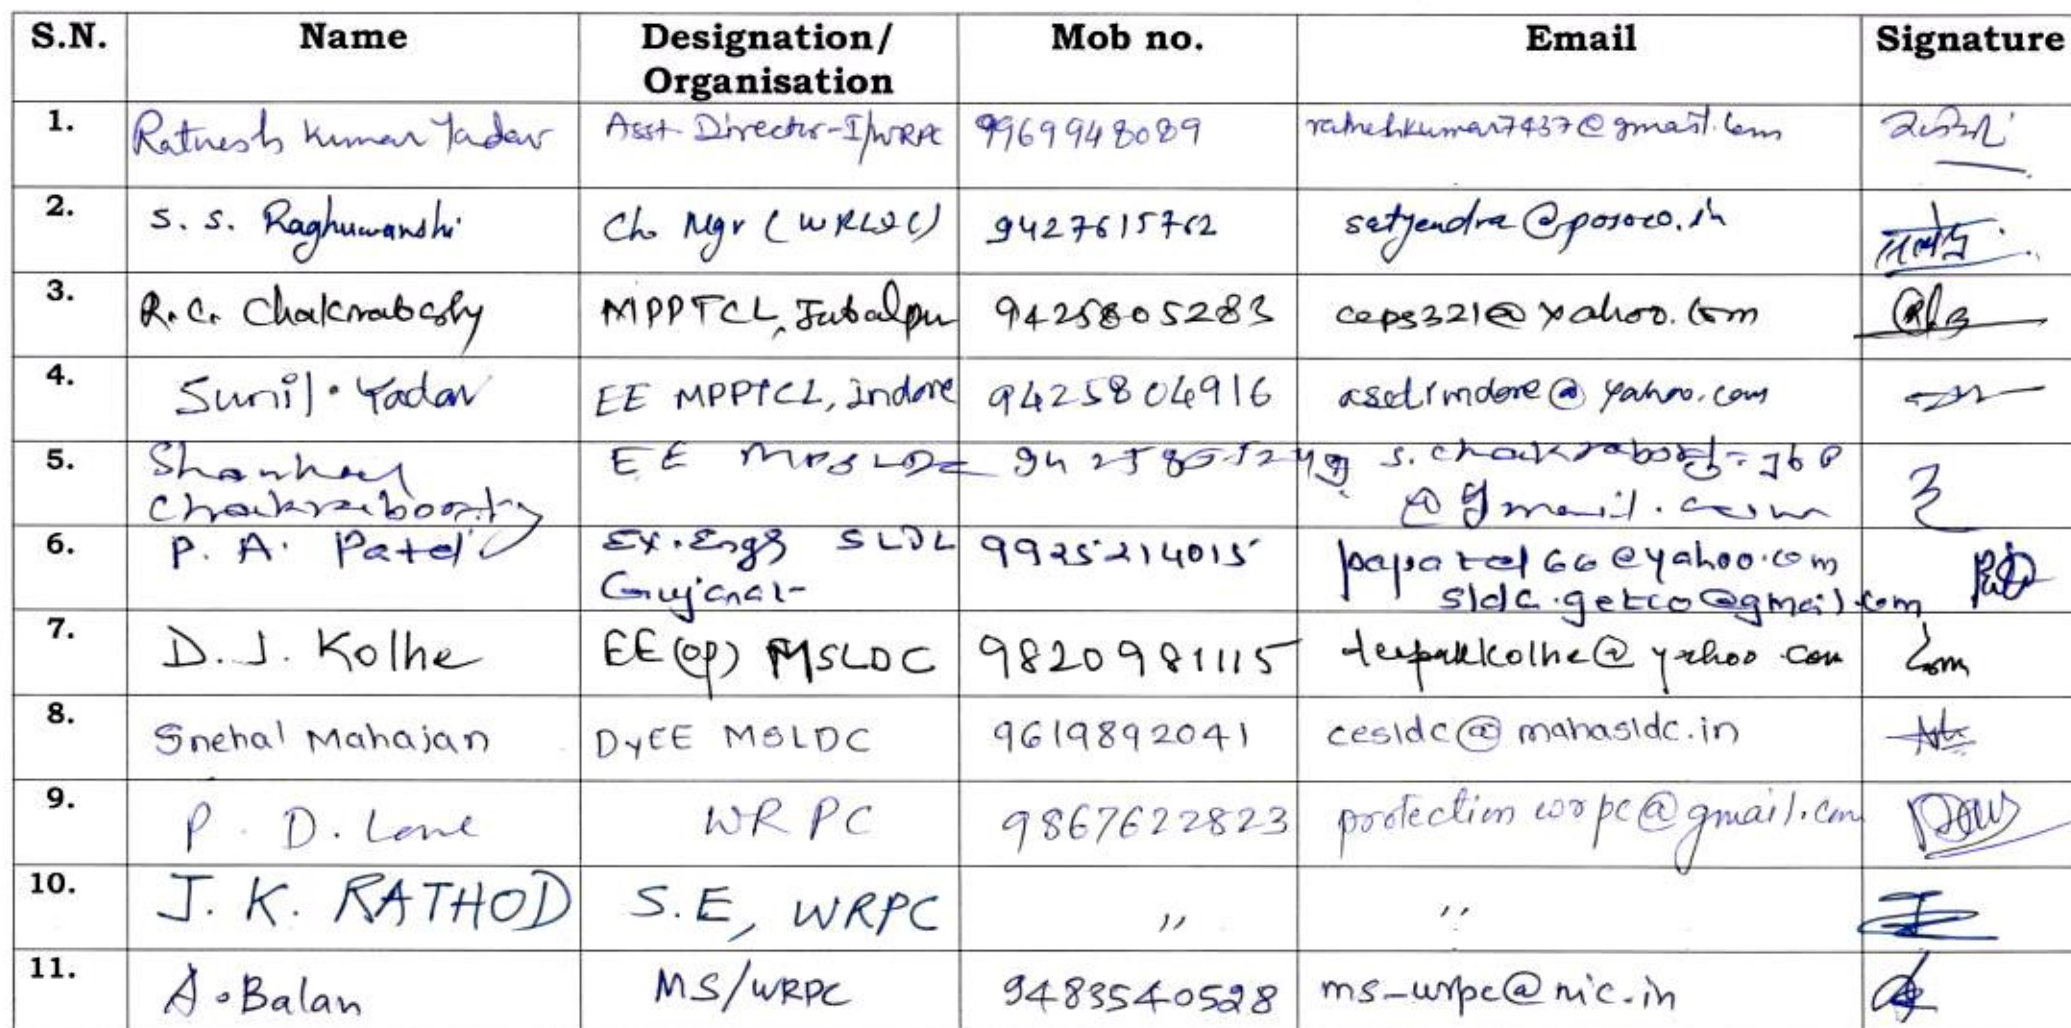 S.N. Name Designation/ Mob no. Email Signature
Organisation
1. Ratnesh Kumar Yadav Asst Director-I/WRPC 9969948089 ratneshkumar7437@gmail.com
2. S. S. Raghuwanshi Ch. Mgr (WRLDC) 9427615762 satyendra@posoco.in
3. R.C. Chakraborty MPPTCL, Jabalpur 9425805283 ceps321@yahoo.com
4. Sunil Yadav EE MPPTCL, indore 9425804916 @yahoo.com
5. EE MPSLDC
Chakraborty @gmail.com
6. P. A. Patel Ex.Engg SLDC 9925214015 papatel66@yahoo.com
Gujarat sldc.getco@gmail.com
7. D. J. Kolhe EE(op) MSLDC 9820981115 deepakkolhe@yahoo.com
8. Snehal Mahajan DyEE MSLDC 9619892041 cesldc@mahasldc.in
9. P. D. Lone WRPC 9867622823 protectionwrpc@gmail.com
10. J. K. RATHOD S.E, WRPC ,, ,,
11. A. Balan MS/WRPC 9483540528 ms-wrpc@nic.in